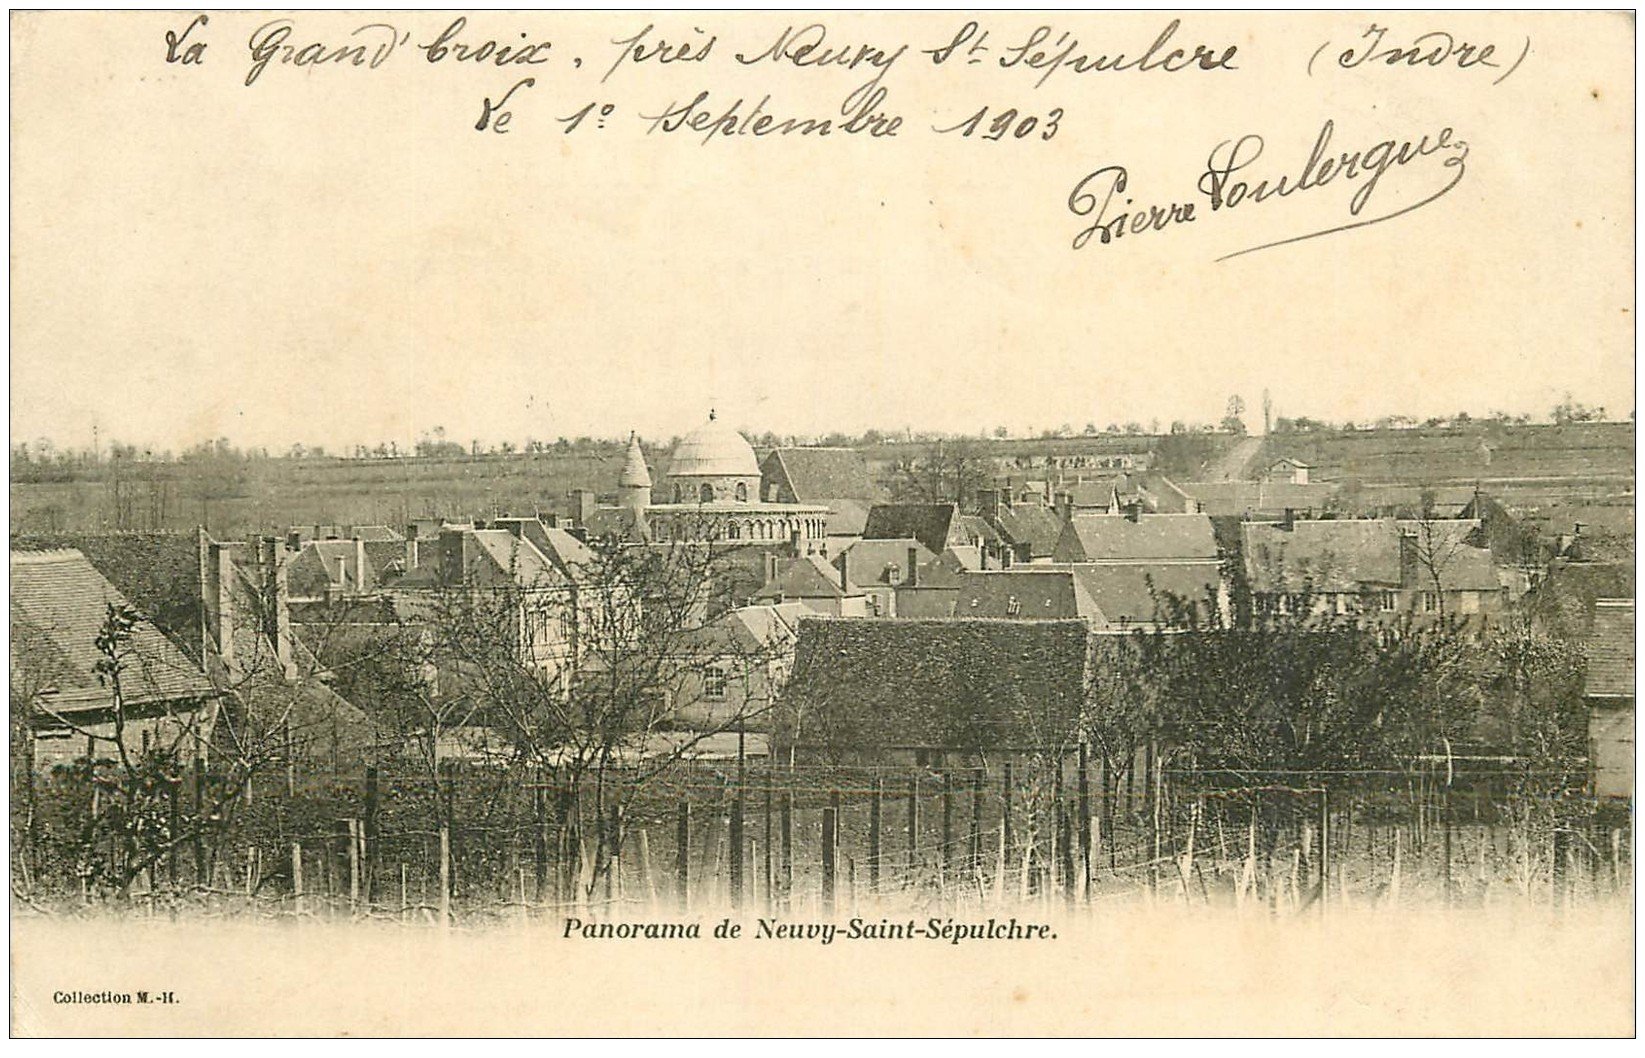 La Grand' Croix, près Neuvy St Sépulcre (Indre)
Le 1º Septembre 1903
Pierre Loulergue
Panorama de Neuvy-Saint-Sépulchre.
Collection M.-H.